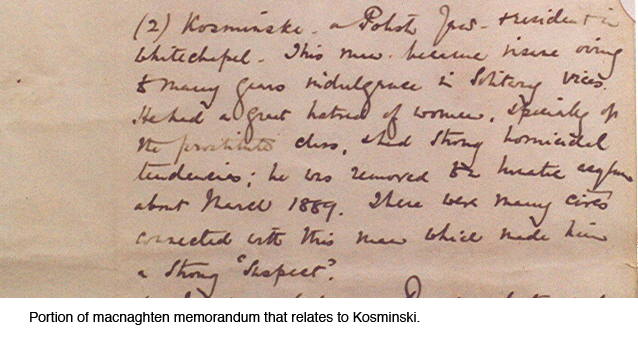 (2) Kosminski - a Polish Jew - & resident in
Whitechapel. This man became insane owing
to many years indulgence in Solitary vices.
He had a great hatred of women, specially of
the prostitute class, & had strong homicidal
tendencies; he was removed to a lunatic asylum
about March 1889. There were many circs
connected with this man which made him
a strong "suspect".
Portion of macnaghten memorandum that relates to Kosminski.